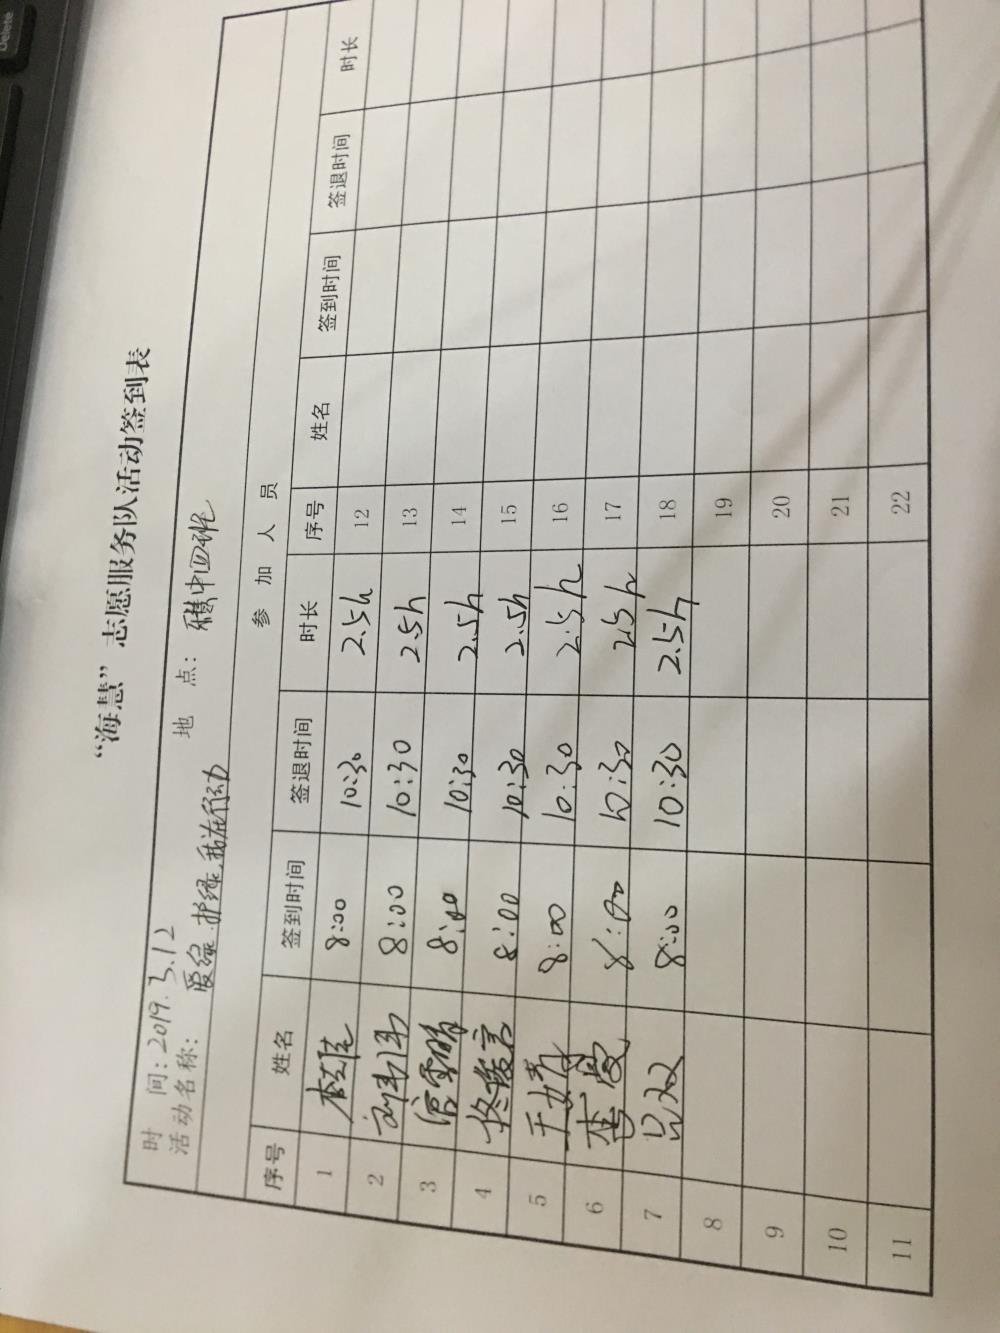 “海慧”志愿服务队活动签到表
时 间：2019.3.12 地 点：
活动名称：爱绿.护绿,我在行动
参 加 人 员
序号 姓名 签到时间 签退时间 时长 序号 姓名 签到时间 签退时间 时长
1 8:00 10:30 2.5h 12
2 8:00 10:30 2.5h 13
3 8:00 10:30 2.5h 14
4 佟俊言 8:00 10:30 2.5h 15
5 8:00 10:30 2.5h 16
6 8:00 10:30 2.5h 17
7 吴双 8:00 10:30 2.5h 18
8 19
9 20
10 21
11 22
Delete